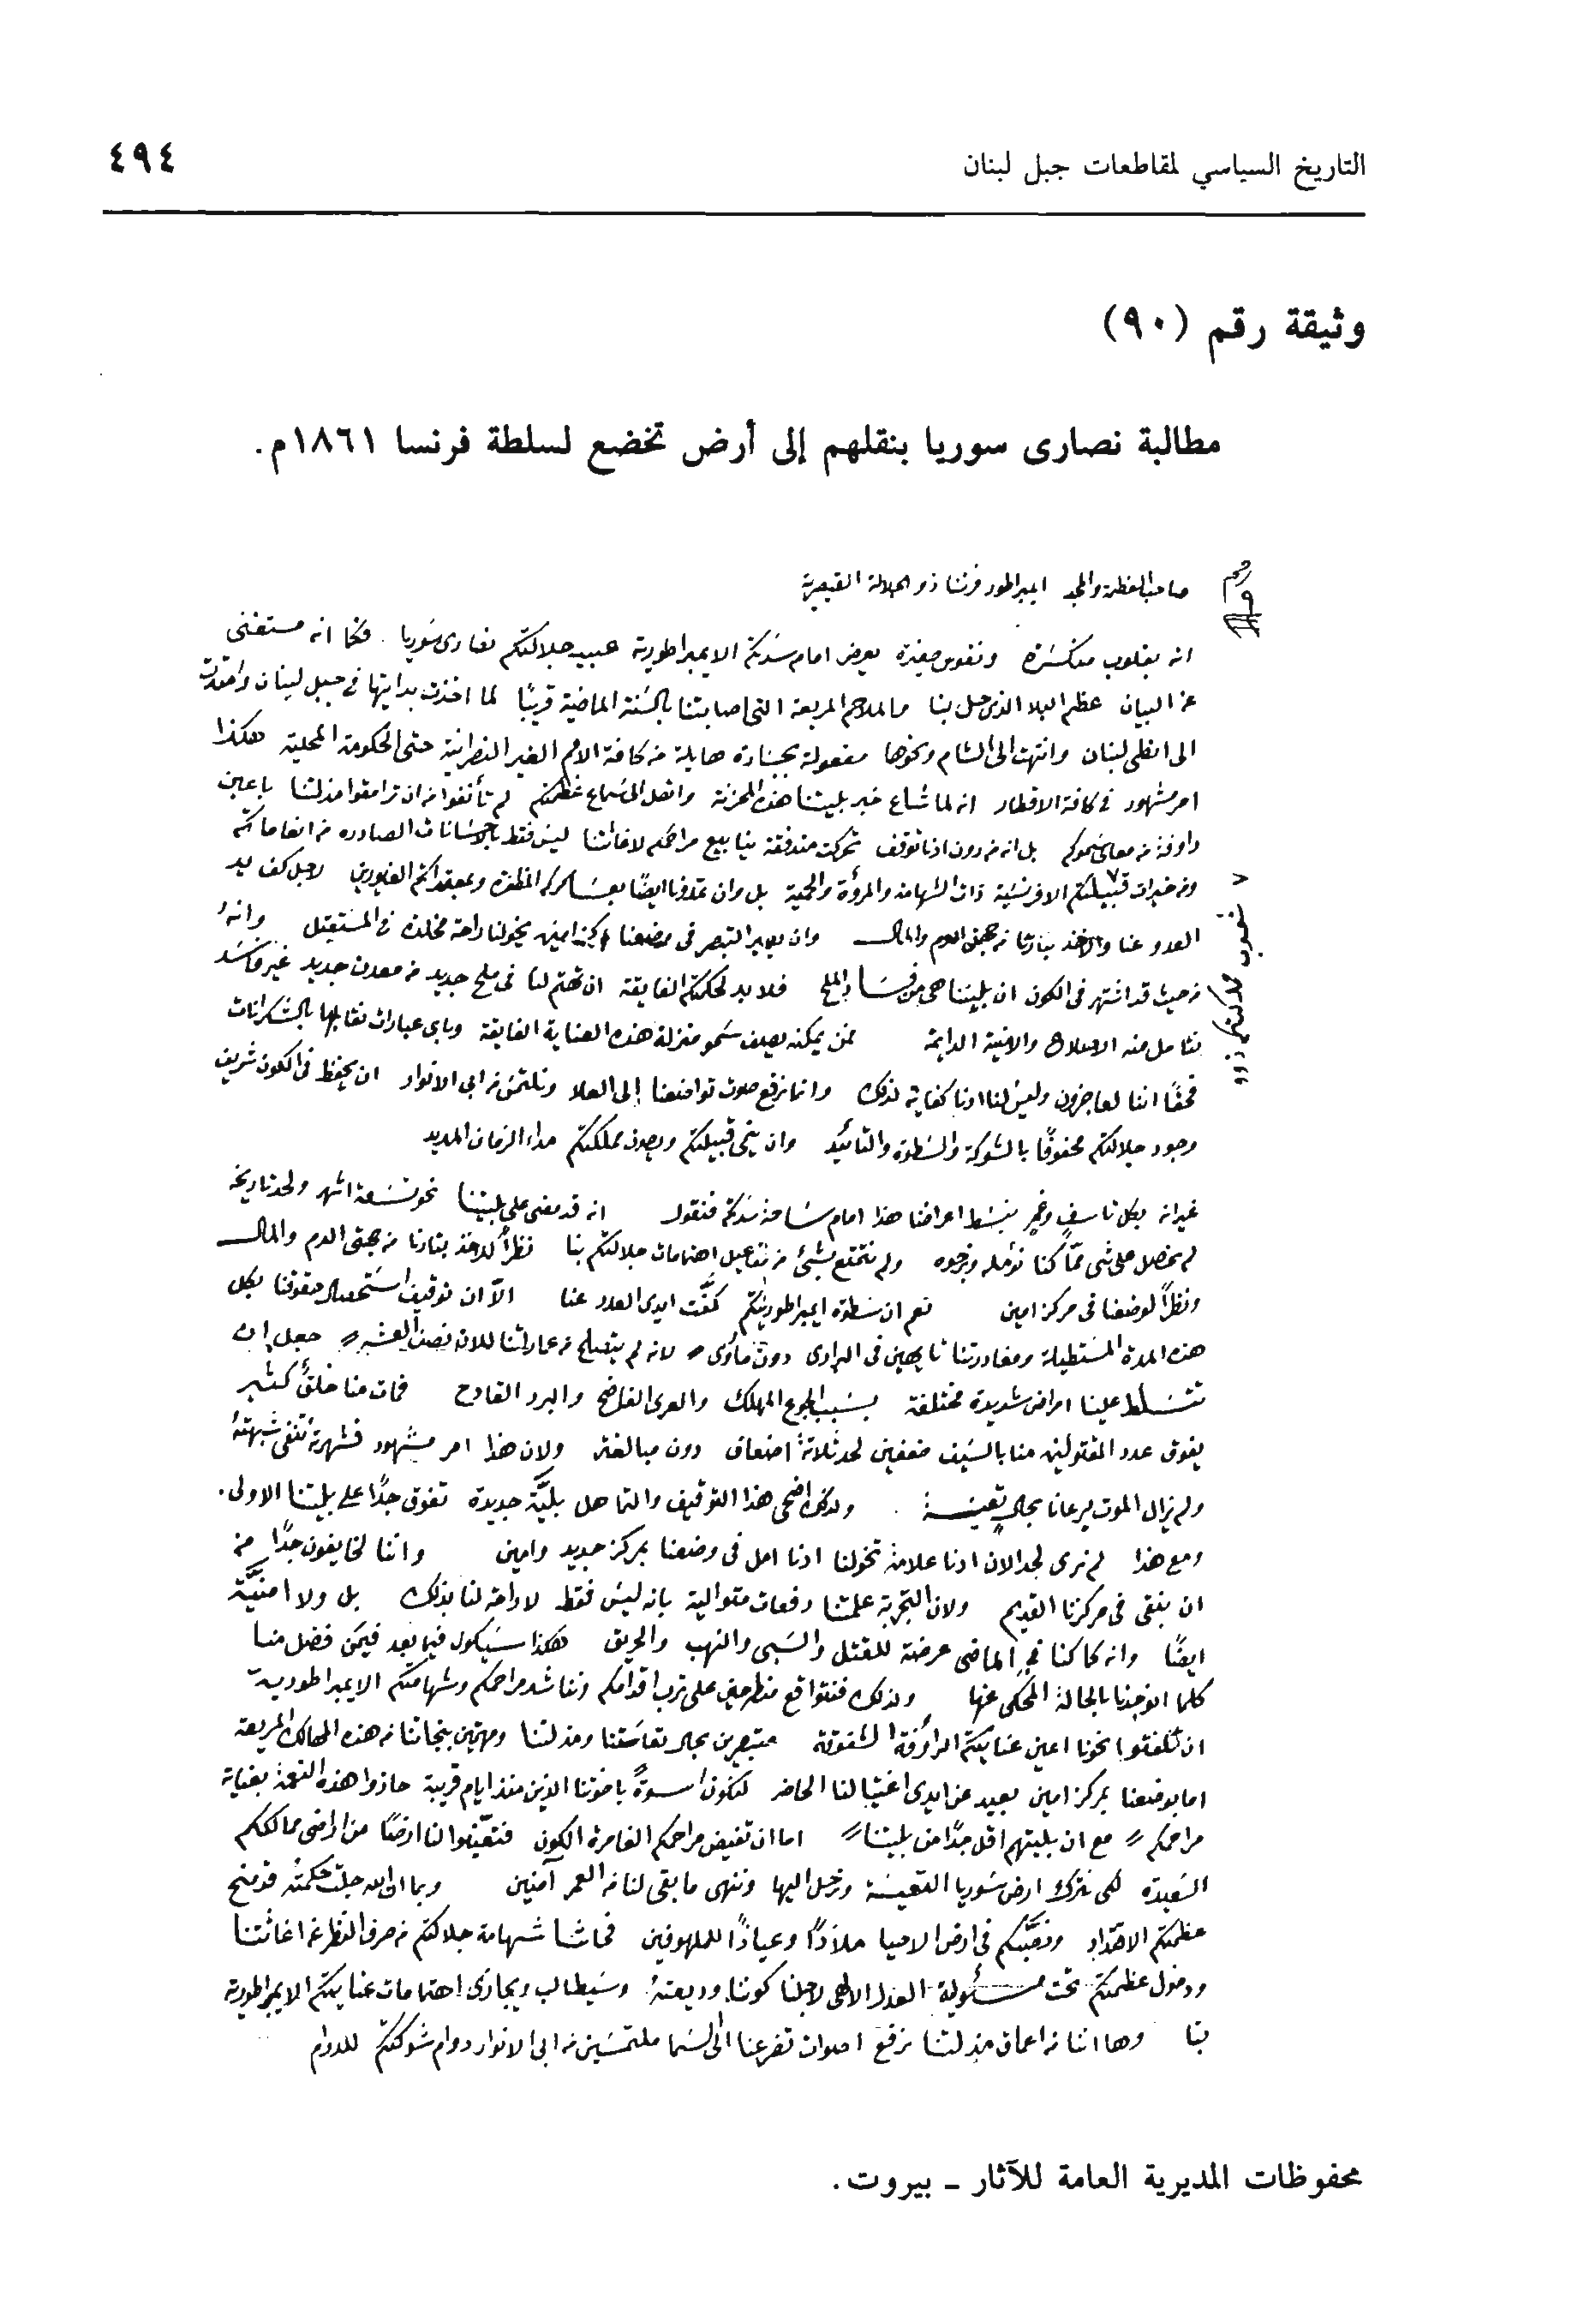 التاريخ السياسي لمقاطعات جبل لبنان
٤٩٤
وثيقة رقم (٩٠)
مطالبة نصارى سوريا بنقلهم إلى أرض تخضع لسلطة فرنسا ١٨٦١م.
صاحب العظمة والمجد ايمبراطور فرنسا ذو الجلالة القيصرية
انه بقلوب منكسرة ونفوس صغيرة يعرض امام سدتكم الايمبراطورية عبيد جلالتكم نصارى سوريا. فكما انه مستغنى
عن البيان عظم البلا الذى حل بنا والملاحم المريعة التى اصابتنا بالسنة الماضية قريبًا لما اخذت بدايتها فى جبل لبنان وامتدت
الى انطى لبنان وانتهت الى الشام ونحوها مفعولة بجسارة هايلة من كافة الامم الغير النصرانية حتى الحكومة المحلية هكذا
امر مشهور فى كافة الاقطار انه لما شاع خبر بليتنا هذه المحزنة واتصل الى سماع عظمتكم لم تأنفوا من ان ترامقوا مذلتنا باعين
رأوفة من معالى سموكم بل انه من دون ادنا توقف تحركت متدفقة ينابيع مراحمكم لاغاثتنا ليس فقط بالاحسانات الصادره من انعاماتكم
ومن خيرات قبيلتكم الافرنسية ذات الشهامة والمرؤة والحمية بل وان تمدونا ايضًا بعساكركم المظفرة وبمعتمداتكم الغيورين لاجل كف يد
العدو عنا والاخذ بثارنا من جهتى الدم والمال وان يصير التبصر فى موضعنا بمركز امين يخولنا راحة مخلدة فى المستقبل وانهُ
من حيث قد اشتهر فى الكون ان بليتنا هى من فساد الملح فلابد لحكمتكم الفايقة ان تهتم لنا فى ملح جديد من معدن جديد غير فاسد
نتامل منه الاصلاح والامنية الدايمة فمن يمكنه يصف سمو منزلة هذه العناية الفايقة وباى عبارات نقابلها بالشكرانات
فحقًا اننا لعاجزون وليس لنا ادنا كفاية لذلك وانما نرفع صوت تواضعنا إلى العلا ونلتمس من ابى الانوار ان يحفظ فى الكون شريف
وجود جلالتكم محفوفًا بالشوكة والسطوة والتائيد وان ينجى قبيلتكم ويصون مملكتكم مداء الزمان المديد
غير انه بكل تاسف وغم نبسط اعراضنا هذا امام سامة سدتكم فنقول انه قد مضى على بليتنا نحو تسعة اشهر ولحد تاريخه
لم نحصل على شى ممّا كنا نؤمله ونرجوه ولم نتمتع بشئ من تفاعيل اهتمامات جلالتكم بنا نظراً للاخذ بثارنا من جهتى الدم والمال
ونظراً لوضعنا فى مركز امين نعم ان سطوة ايمبراطوريتكم كفَّت ايدى العدو عنا الاّ ان توقيف استحصال حقوقنا بكل
هذه المدة المستطيلة ومغادرتنا تايهين فى البرارى دون مأوى لانه لم يتصلح من عماراتنا للان نصف العشر جعل ان
تتسلط علينا امراض شديدة مختلفة بسبب الجوع المهلك والعرى الفاضح والبرد القادح فمات منا خلقٌ كثير
يفوق عدد المقتولين منا بالسيف ضعفين لحد ثلاثة اضعاف دون مبالغة ولان هذا امر مشهود فشهرته تنفى شبهته
ولم يزال الموت يرعانا بحالٍ تعيسة. ولذلك اضحى هذا التوقيف والتماهل بليَّة جديدة تفوق جدًا على بليتنا الاولى.
ومع هذا لم نرى لحد الان ادنا علامة تخولنا ادنا امل فى وضعنا بمركز جديد وامين واننا لخايفون جدًا من
ان نبقى فى مركزنا القديم ولان التجربة علمتنا دفعات متوالية بانه ليس فقط لا راحة لنا بذلك بل ولا امنيَّة
ايضًا وانه كما كنا فى الماضى عرضة للقتل والسبى والنهب والحريق هكذا سيكون فيما بعد فيمن فضل منا
كلما انوجدنا بالحالة المحكى عنها ولذلك فنتواقع منطرحين على ترب اقدامكم ونناشد مراحمكم وشهامتكم الايمبراطورية
ان تلفتوا نحونا اعين عنايتكم الرأوفة الشفوقة متبصرين بحال تعاستنا ومذلتنا ومهتمين بنجاتنا من هذه المهالك المريعة
اما بوضعنا بمركز امين بعيد عن ايدى اغتيالنا الحاضر لنكون اسوةً باخوتنا الذين منذ ايام قريبة حازوا هذه النعمة بعناية
مراحمكم مع ان بليتهم اقل جدًا من بليتنا اما ان تفيض مراحمكم الغامرة الكون فتعيّنوا لنا ارضًا من اراضى ممالككم
السعيدة لكى نترك ارض سوريا التعيسة ونرحل اليها وننهى ما بقى لنا من العمر آمنين وبما ان الله جلت حكمته قد منح
عظمتكم الاقتدار ونصَّبكم فى ارض الاحيا ملاذًا وعياذًا للملهوفين فحاشا شهامة جلالتكم من صرف النظر عن اغاثتنا
ودخول عظمتكم تحت مسئولية العدل الالهى لاجلنا كوننا وديعتهُ وسيطالب ويجازى اهتمامات عنايتكم الايمبراطورية
بنا وها اننا من اعماق مذلتنا نرفع اصوات تضرعنا الى السما ملتمسين من ابى الانوار دوام شوكتكم للدوام
محفوظات المديرية العامة للآثار - بيروت.